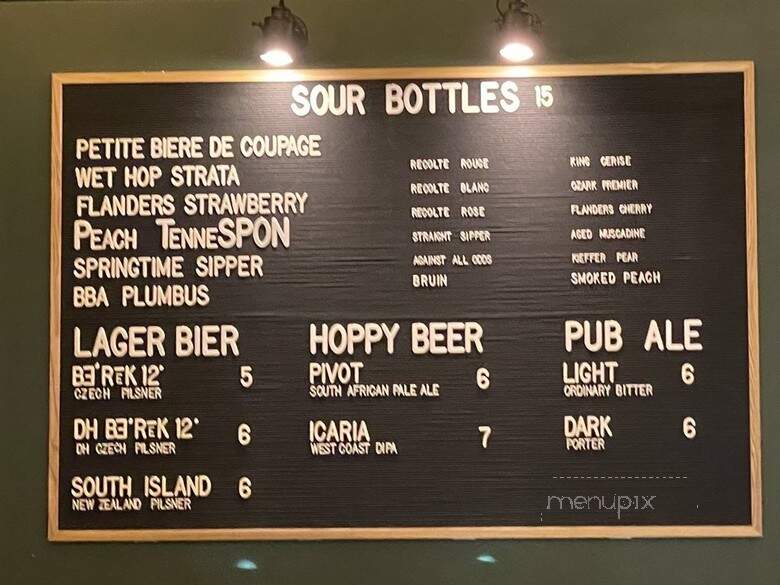 SOUR BOTTLES 15
PETITE BIERE DE COUPAGE
WET HOP STRATA
FLANDERS STRAWBERRY
PEACH TENNESPON
SPRINGTIME SIPPER
BBA PLUMBUS
RECOLTE ROUGE
RECOLTE BLANC
RECOLTE ROSE
STRAIGHT SIPPER
AGAINST ALL ODDS
BRUIN
KING CERISE
OZARK PREMIER
FLANDERS CHERRY
AGED MUSCADINE
KIEFFER PEAR
SMOKED PEACH
LAGER BIER
BE°REK 12° 5
CZECH PILSNER
DH BE°REK 12° 6
DH CZECH PILSNER
SOUTH ISLAND 6
NEW ZEALAND PILSNER
HOPPY BEER
PIVOT 6
SOUTH AFRICAN PALE ALE
ICARIA 7
WEST COAST DIPA
PUB ALE
LIGHT 6
ORDINARY BITTER
DARK 6
PORTER
menupix